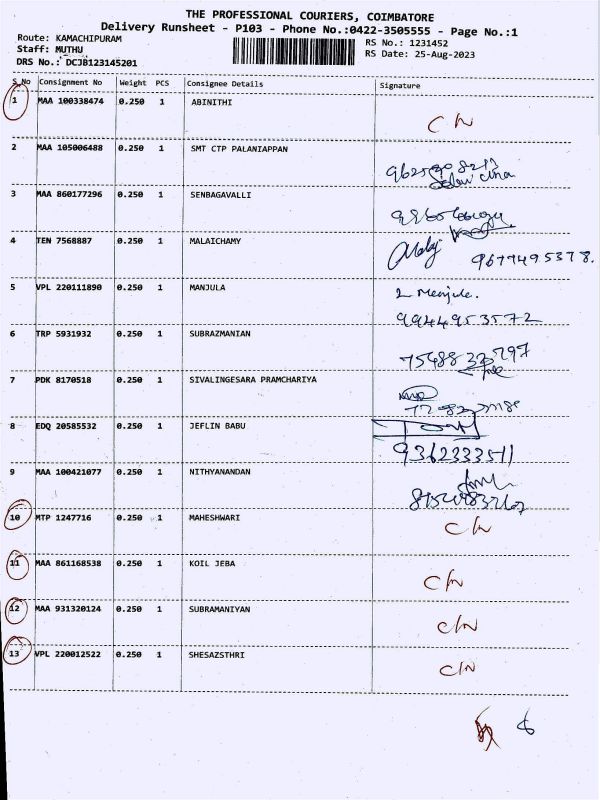 THE PROFESSIONAL COURIERS, COIMBATORE
Delivery Runsheet - P103 - Phone No.:0422-3505555 - Page No.:1
Route: KAMACHIPURAM RS No.: 1231452
Staff: MUTHU RS Date: 25-Aug-2023
DRS No.: DCJB123145201
S.No Consignment No Weight PCS Consignee Details Signature
1 MAA 100338474 0.250 1 ABINITHI
2 MAA 105006488 0.250 1 SMT CTP PALANIAPPAN
3 MAA 860177296 0.250 1 SENBAGAVALLI
4 TEN 7568887 0.250 1 MALAICHAMY 9677495378.
5 VPL 220111890 0.250 1 MANJULA
9944953572
6 TRP 5931932 0.250 1 SUBRAZMANIAN
7 PDK 8170518 0.250 1 SIVALINGESARA PRAMCHARIYA
8 EDQ 20585532 0.250 1 JEFLIN BABU
9362333511
9 MAA 100421077 0.250 1 NITHYANANDAN
10 MTP 1247716 0.250 1 MAHESHWARI
11 MAA 861168538 0.250 1 KOIL JEBA
12 MAA 931320124 0.250 1 SUBRAMANIYAN
13 VPL 220012522 0.250 1 SHESAZSTHRI